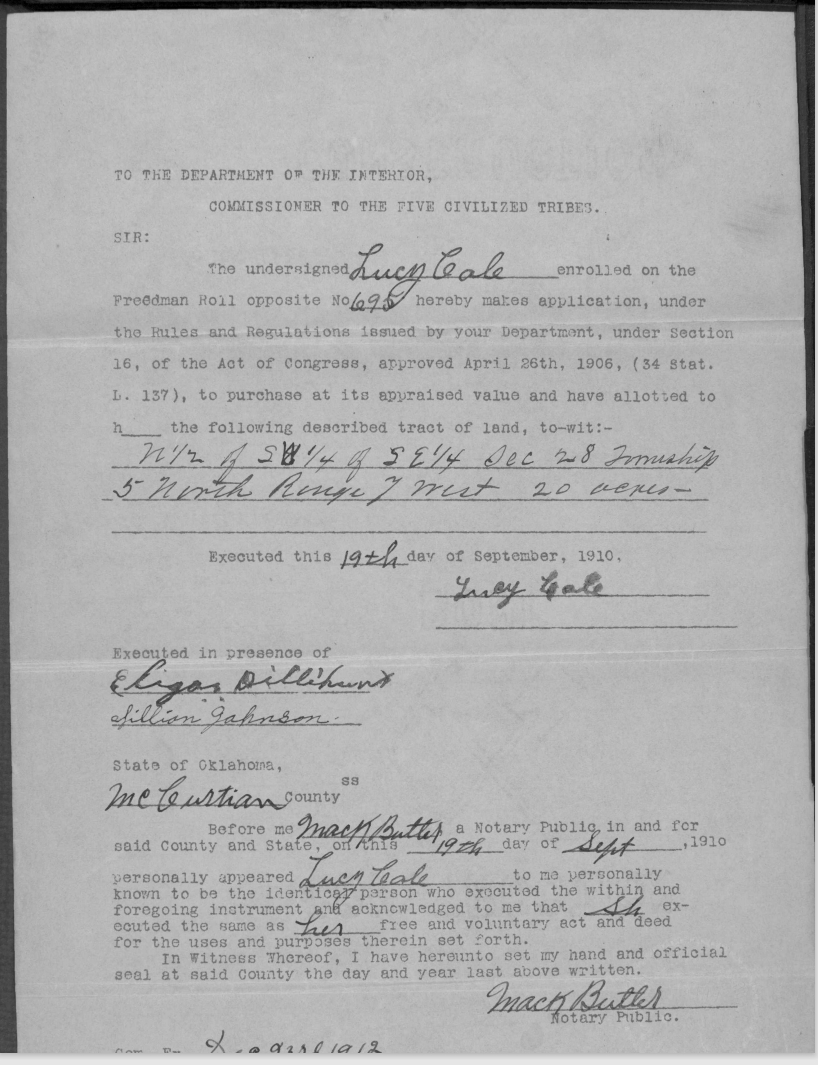 TO THE DEPARTMENT OF THE INTERIOR,
COMMISSIONER TO THE FIVE CIVILIZED TRIBES.
SIR:
The undersigned Lucy Cole enrolled on the
Freedman Roll opposite No 695 hereby makes application, under
the Rules and Regulations issued by your Department, under Section
16, of the Act of Congress, approved April 26th, 1906, (34 Stat.
L. 137), to purchase at its appraised value and have allotted to
h___ the following described tract of land, to-wit:-
N 1/2 of SW 1/4 of S E 1/4 Sec 28 Township
5 North Range 7 West 20 acres-
Executed this 19th day of September, 1910.
Lucy Cole
Executed in presence of
Eligas Dillihunt
Lillian Johnson.
State of Oklahoma,
ss
McCurtian County
Before me Mack Butler, a Notary Public in and for
said County and State, on this 19th day of Sept, 1910
personally appeared Lucy Cole to me personally
known to be the identical person who executed the within and
foregoing instrument and acknowledged to me that Sh ex-
ecuted the same as her free and voluntary act and deed
for the uses and purposes therein set forth.
In Witness Whereof, I have hereunto set my hand and official
seal at said County the day and year last above written.
Mack Butler
Notary Public.
Com. Ex. 1912